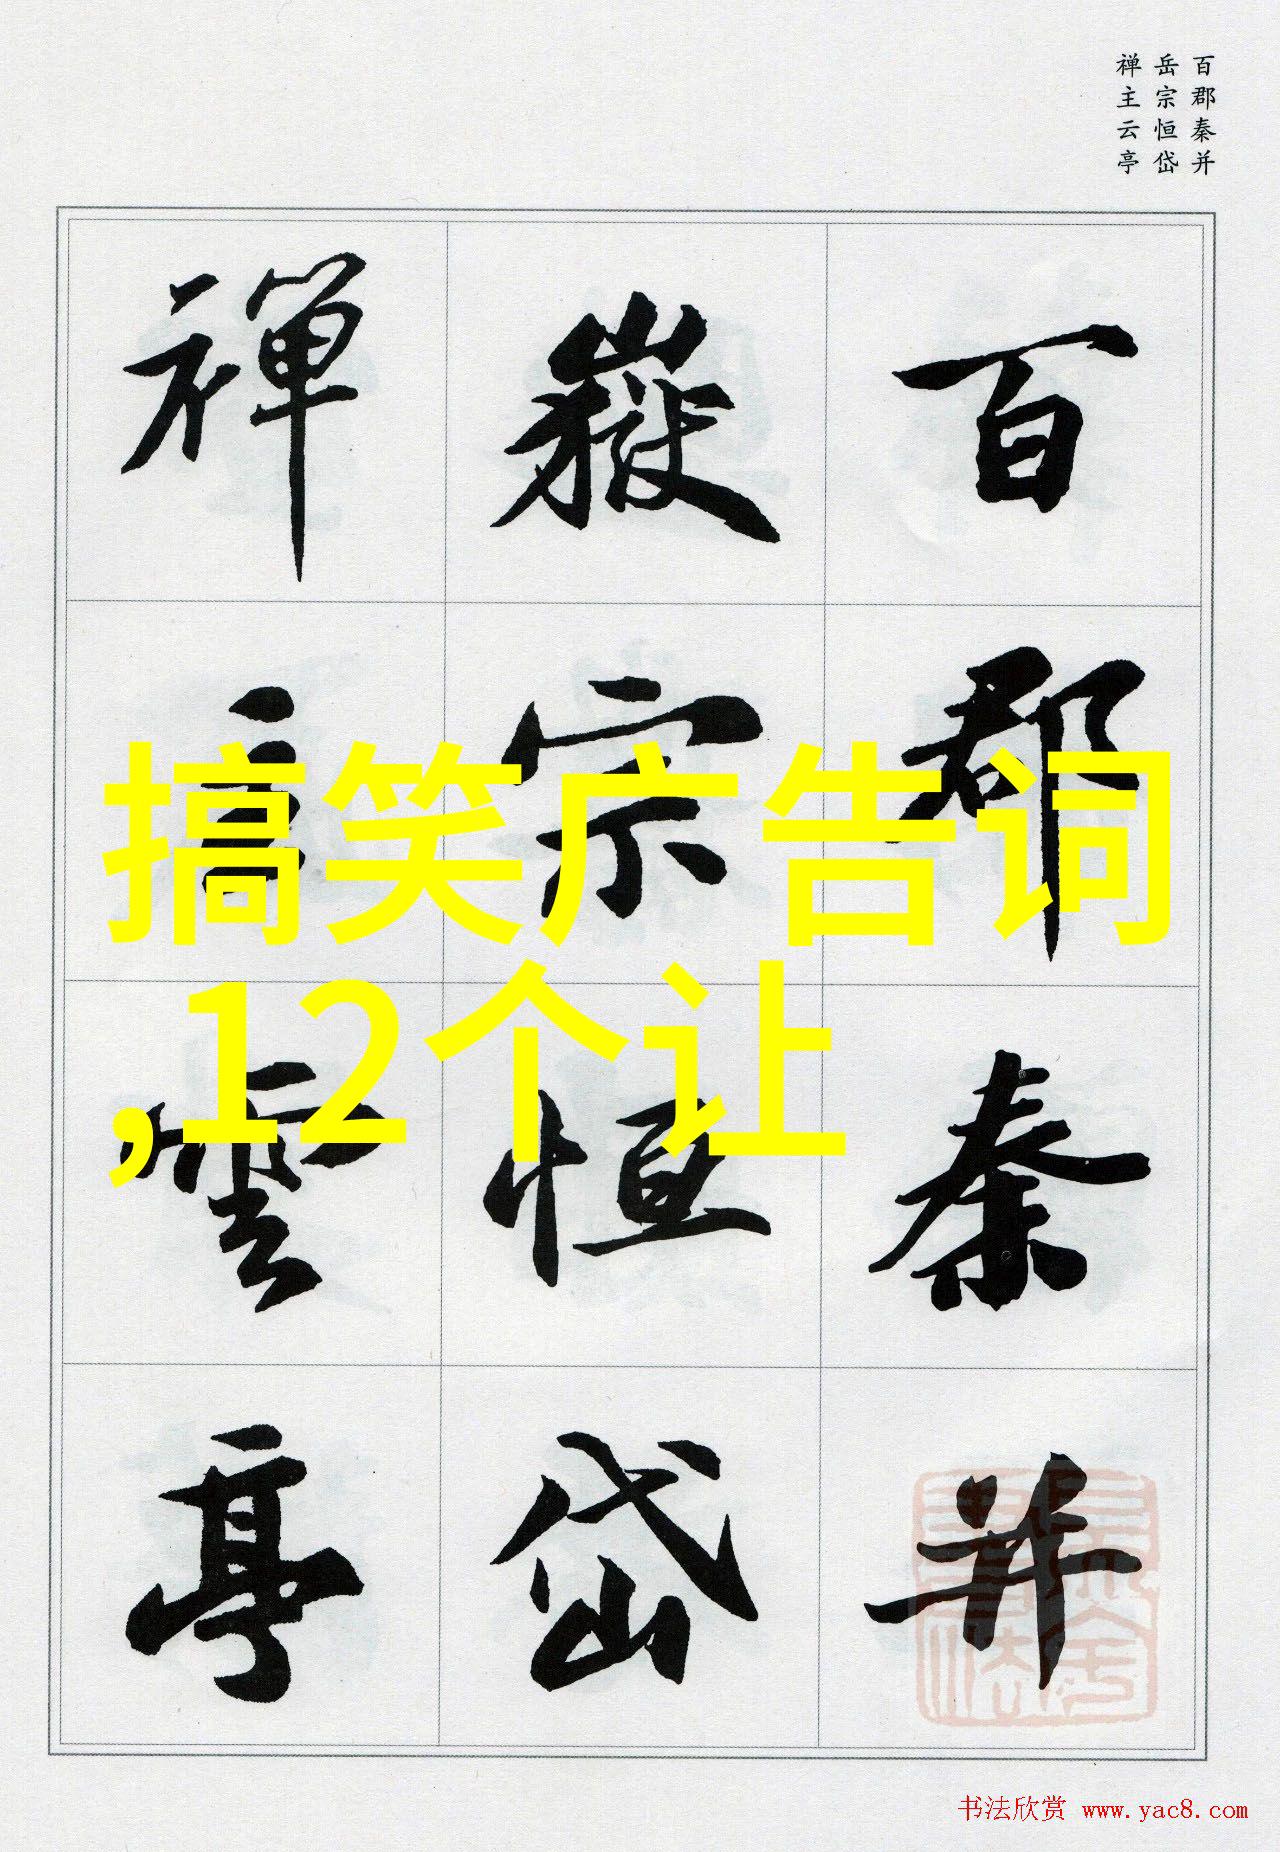 百郡秦并
岳宗恒岱
禅主云亭
百郡秦并
嶽宗恒岱
禅主雲亭
搞笑广告词
,12个让
书法欣赏 www.yac8.com